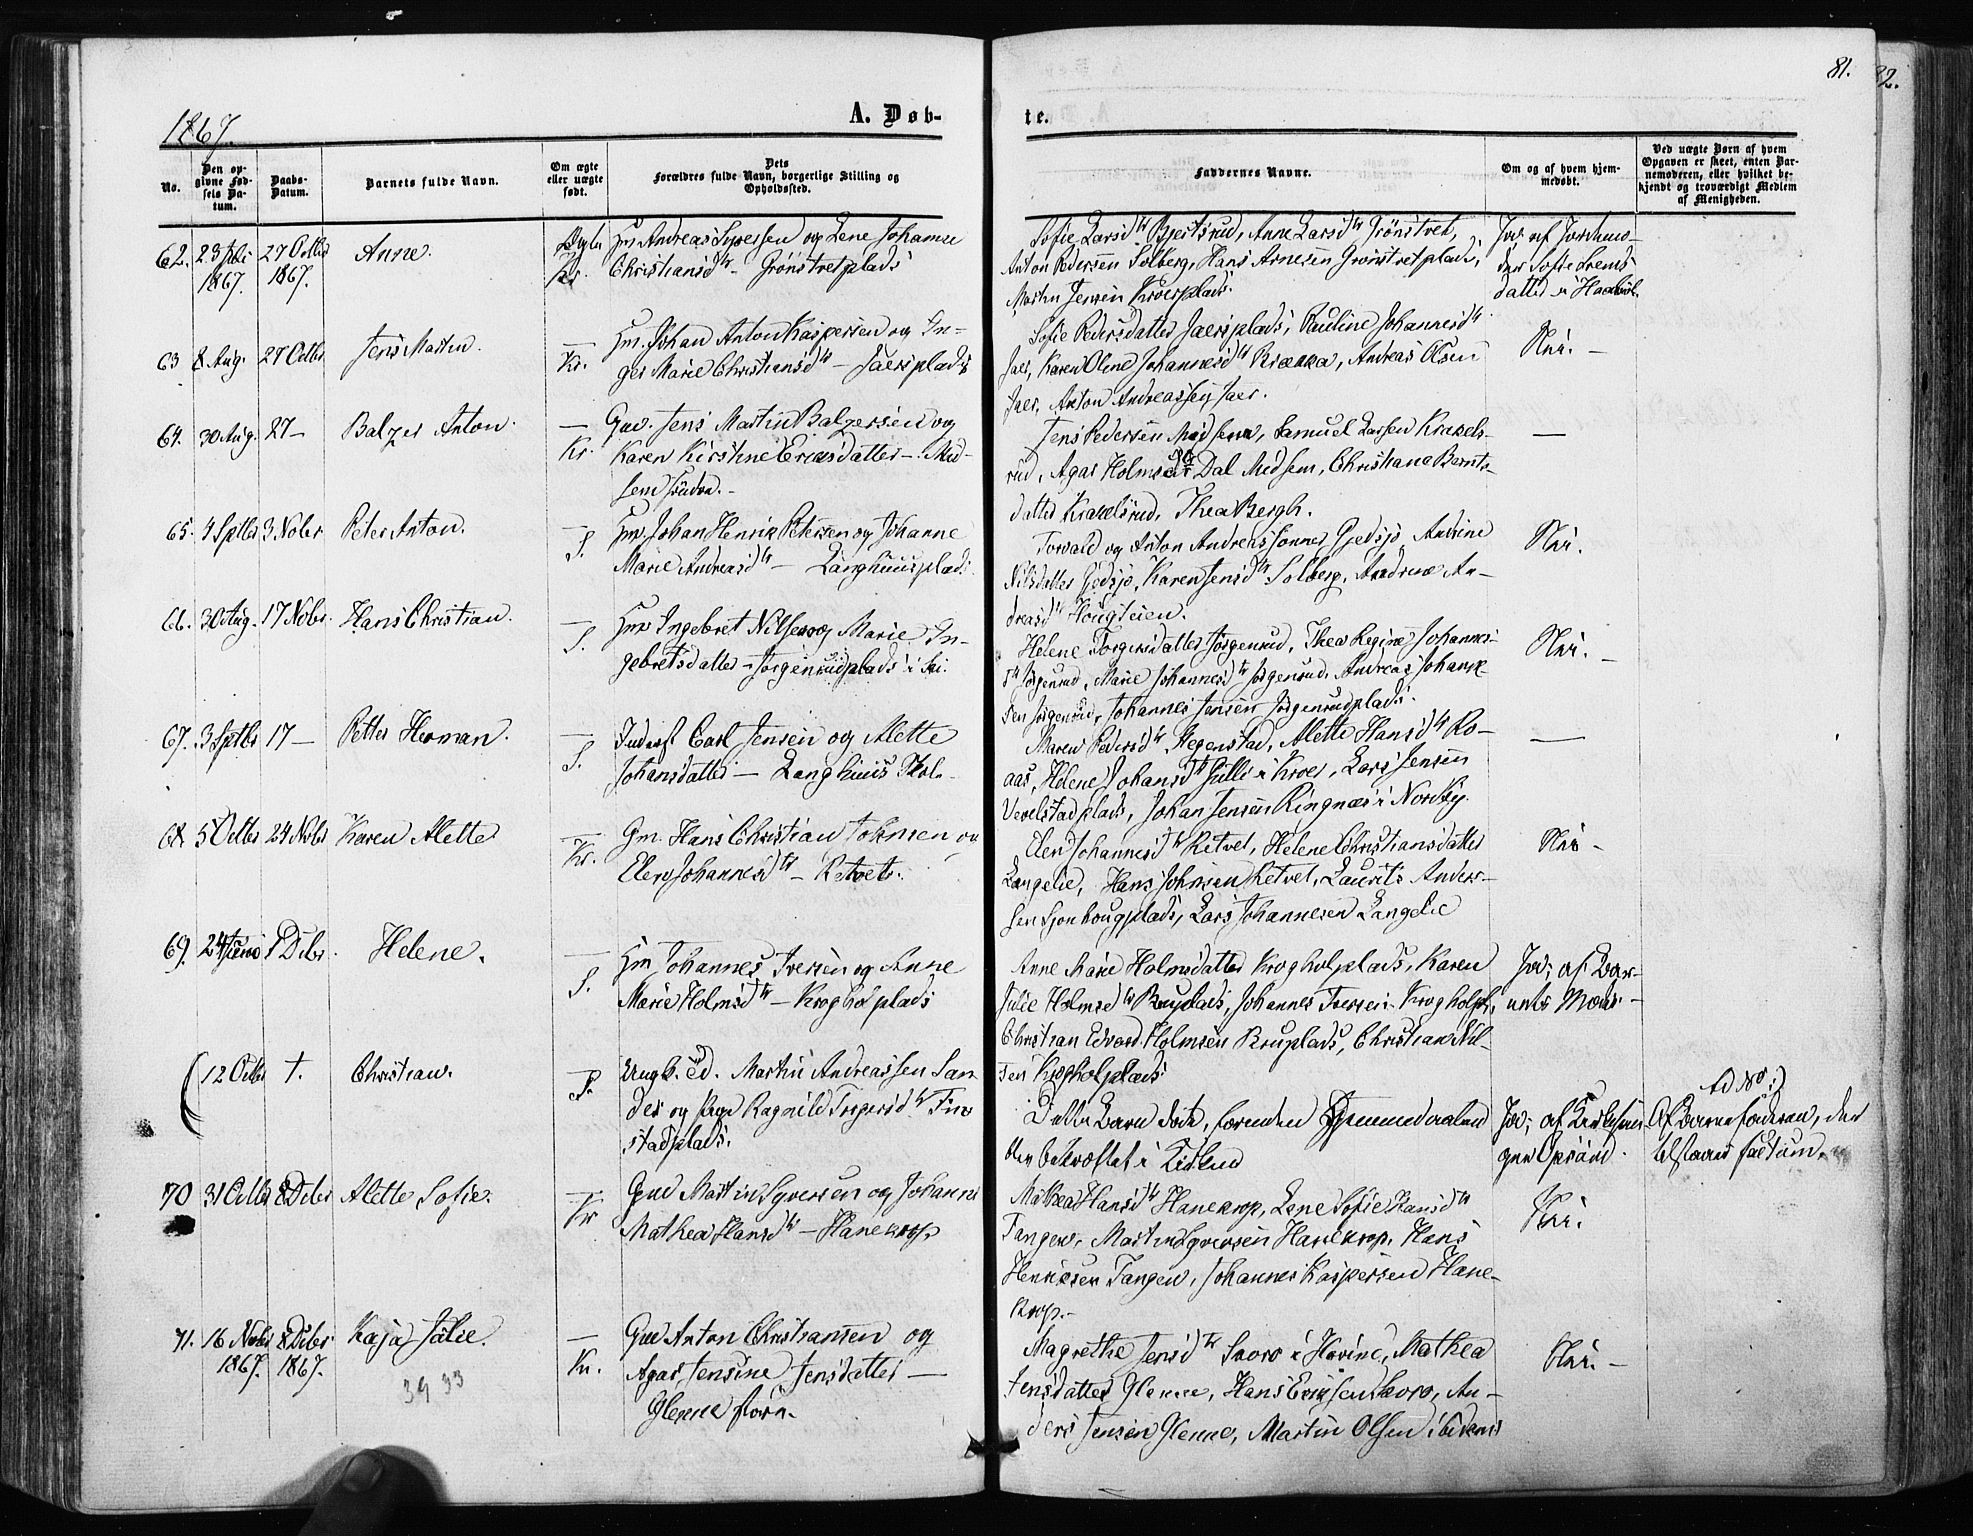 81.
82.
1867.
A. Døb-
te.
No.
Den op-
givne Fød-
sels Da-
tum.
Daabs-
Datum.
Barnets fulde Navn.
Om ægte
eller uægte
født.
Dets
Forældres fulde Navn, borgerlige Stilling og
Opholdssted.
Faddernes Navne.
Om og af hvem hjem-
medøbt.
Ved uægte Børn af hvem
Opgaven er skeet, enten Bar-
nemoderen, eller hvilket be-
kjendt og troværdigt Medlem
af Menigheden.
62.
1867.
27 Octbr
1867.
Anne.
Kr.
Hm Andreas Syversen og Lene Johanne
Christiansdtr - Grönsletplads
Sofie Larsdtr Bjertsrud, Anne Larsdtr Grönslet,
Anton Pedersen Solberg, Hans Arnesen Grönsletplads,
Martin Jensen Kroerplads.
Ja, af Jordmo-
der Sofie
datter i
63
8 Aug.
27 Octbr
Jens Martin.
—
Kr.
Hm. Johan Anton Kaspersen og In-
ger Marie Christiansdtr - Jaersplads
Sofie Pedersdatter Jaersplads, Pauline Johannesdtr
Jaer, Karen Oline Johannesdtr Brække, Andreas Olsen
Jaer, Anton Andreassen Jaer.
Nei. —
64.
30 Aug.
27 —
Balzer Anton.
—
Kr.
Gm. Jens Martin Balzersen og
Karen Kirstine Eriksdatter - Mid-
sem söndre.
Jens Pedersen Midsem, Samuel Larsen Krakels-
rud, Agar Holmsdtr Dal Midsem, Christiane Bernts-
datter Krakelsrud, Thea Bergh.
—
65.
4 Sptbr
3 Nobr
Peter Anton.
—
S.
Hm Johan Henrik Petersen og Johanne
Marie Andreasdtr - Langhuusplads
Torvald og Anton Andreassönner Gjedsjö, Andrine
Nilsdatter Gjedsjö, Karen Jensdtr Solberg, Andrine An-
dreasdtr Hougteien.
Nei.
66.
30 Aug.
17 Nobr.
Hans Christian.
—
S.
Hm Ingebret Nilsen og Marie In-
gebretsdatter - Jörgensrudplads i Ski.
Helene Torgersdatter Jörgensrud, Thea Regine Johannes-
dtr Jörgensrud, Marie Johannesdtr Jörgensrud, Andreas Johanne-
sen Jörgensrud, Johannes Jensen Jörgensrudplads.
Nei. —
67.
3 Sptbr
17 —
Petter Herman.
—
S.
Inders. Carl Jensen og Alette
Johansdatter — Langhuus Skole
Maren Pedersdtr Hegenstad, Alette Hansdtr Ro-
aas, Helene Johansdtr i Kroer, Lars Jensen
Vevelstadplads, Johan Jensen Ringnæs i Nordby.
—
68
5 Octbr
24 Nobr
Karen Alette
—
Kr.
Gm. Hans Christian Johnsen og
Elen Johannesdtr - Retvet.
Elen Johannesdtr Retvet, Helene Christiansdatter
Langelie, Hans Johnsen Retvet, LauritsAnder-
sen Sjonhougplads, Lars Johannesen Langelie
Nei -
69.
24 Juni
1 Dcbr.
Helene.
—
S.
Hm Johannes Iversen og Anne
Marie Holmsdtr - Krogholplads
Anne Marie Holmsdatter Krogholplads, Karen
Julie Holmsdtr Bruplads, Johannes Iversen Krogholpl.,
Christian Edvard Holmsen Bruplads, Christian Nil-
sen Krogholplads.
Ja, af Bar-
nets Moder. —
12 Octbr
†.
Christian.
—
S.
Ungk. Martin Andreassen San
der og Pige Ragnild Torgersdtr Fin
stadplads.
Dette Barn döde, forinden Hjemmedaaben
blev bekræftet i Kirken
Ja, af Kirkesan-
ger Opsand.
Af Barnefaderen, der
tilstaaer factum.
70
31 Octbr
8 Dcbr
Alette Sofie.
—
Kr
Gm Martin Syversen og Johanne
Mathea Hansdtr - Hanekrop.
Mathea Hansdtr Hanekrop, Lene Sofie Hansdtr
Tangen, Martin Syversen Hanekrop, Hans
Henriksen Tangen, Johannes Kaspersen Hane-
krop.-
Nei.
71.
16 Nobr
1867.
8 Dcbr
1867.
Kaja Julie.
39 33
—
Kr.
Gm Anton Christiansen og
Agar Jensine Jensdatter —
Glenne store.
Magrethe Jensdtr Skoro i Hovine, Mathea
Jensdatter Glenne, Hans Eriksen Skoro, An-
ders Jensen Glenne, Martin Olsen ibidem
Nei. —